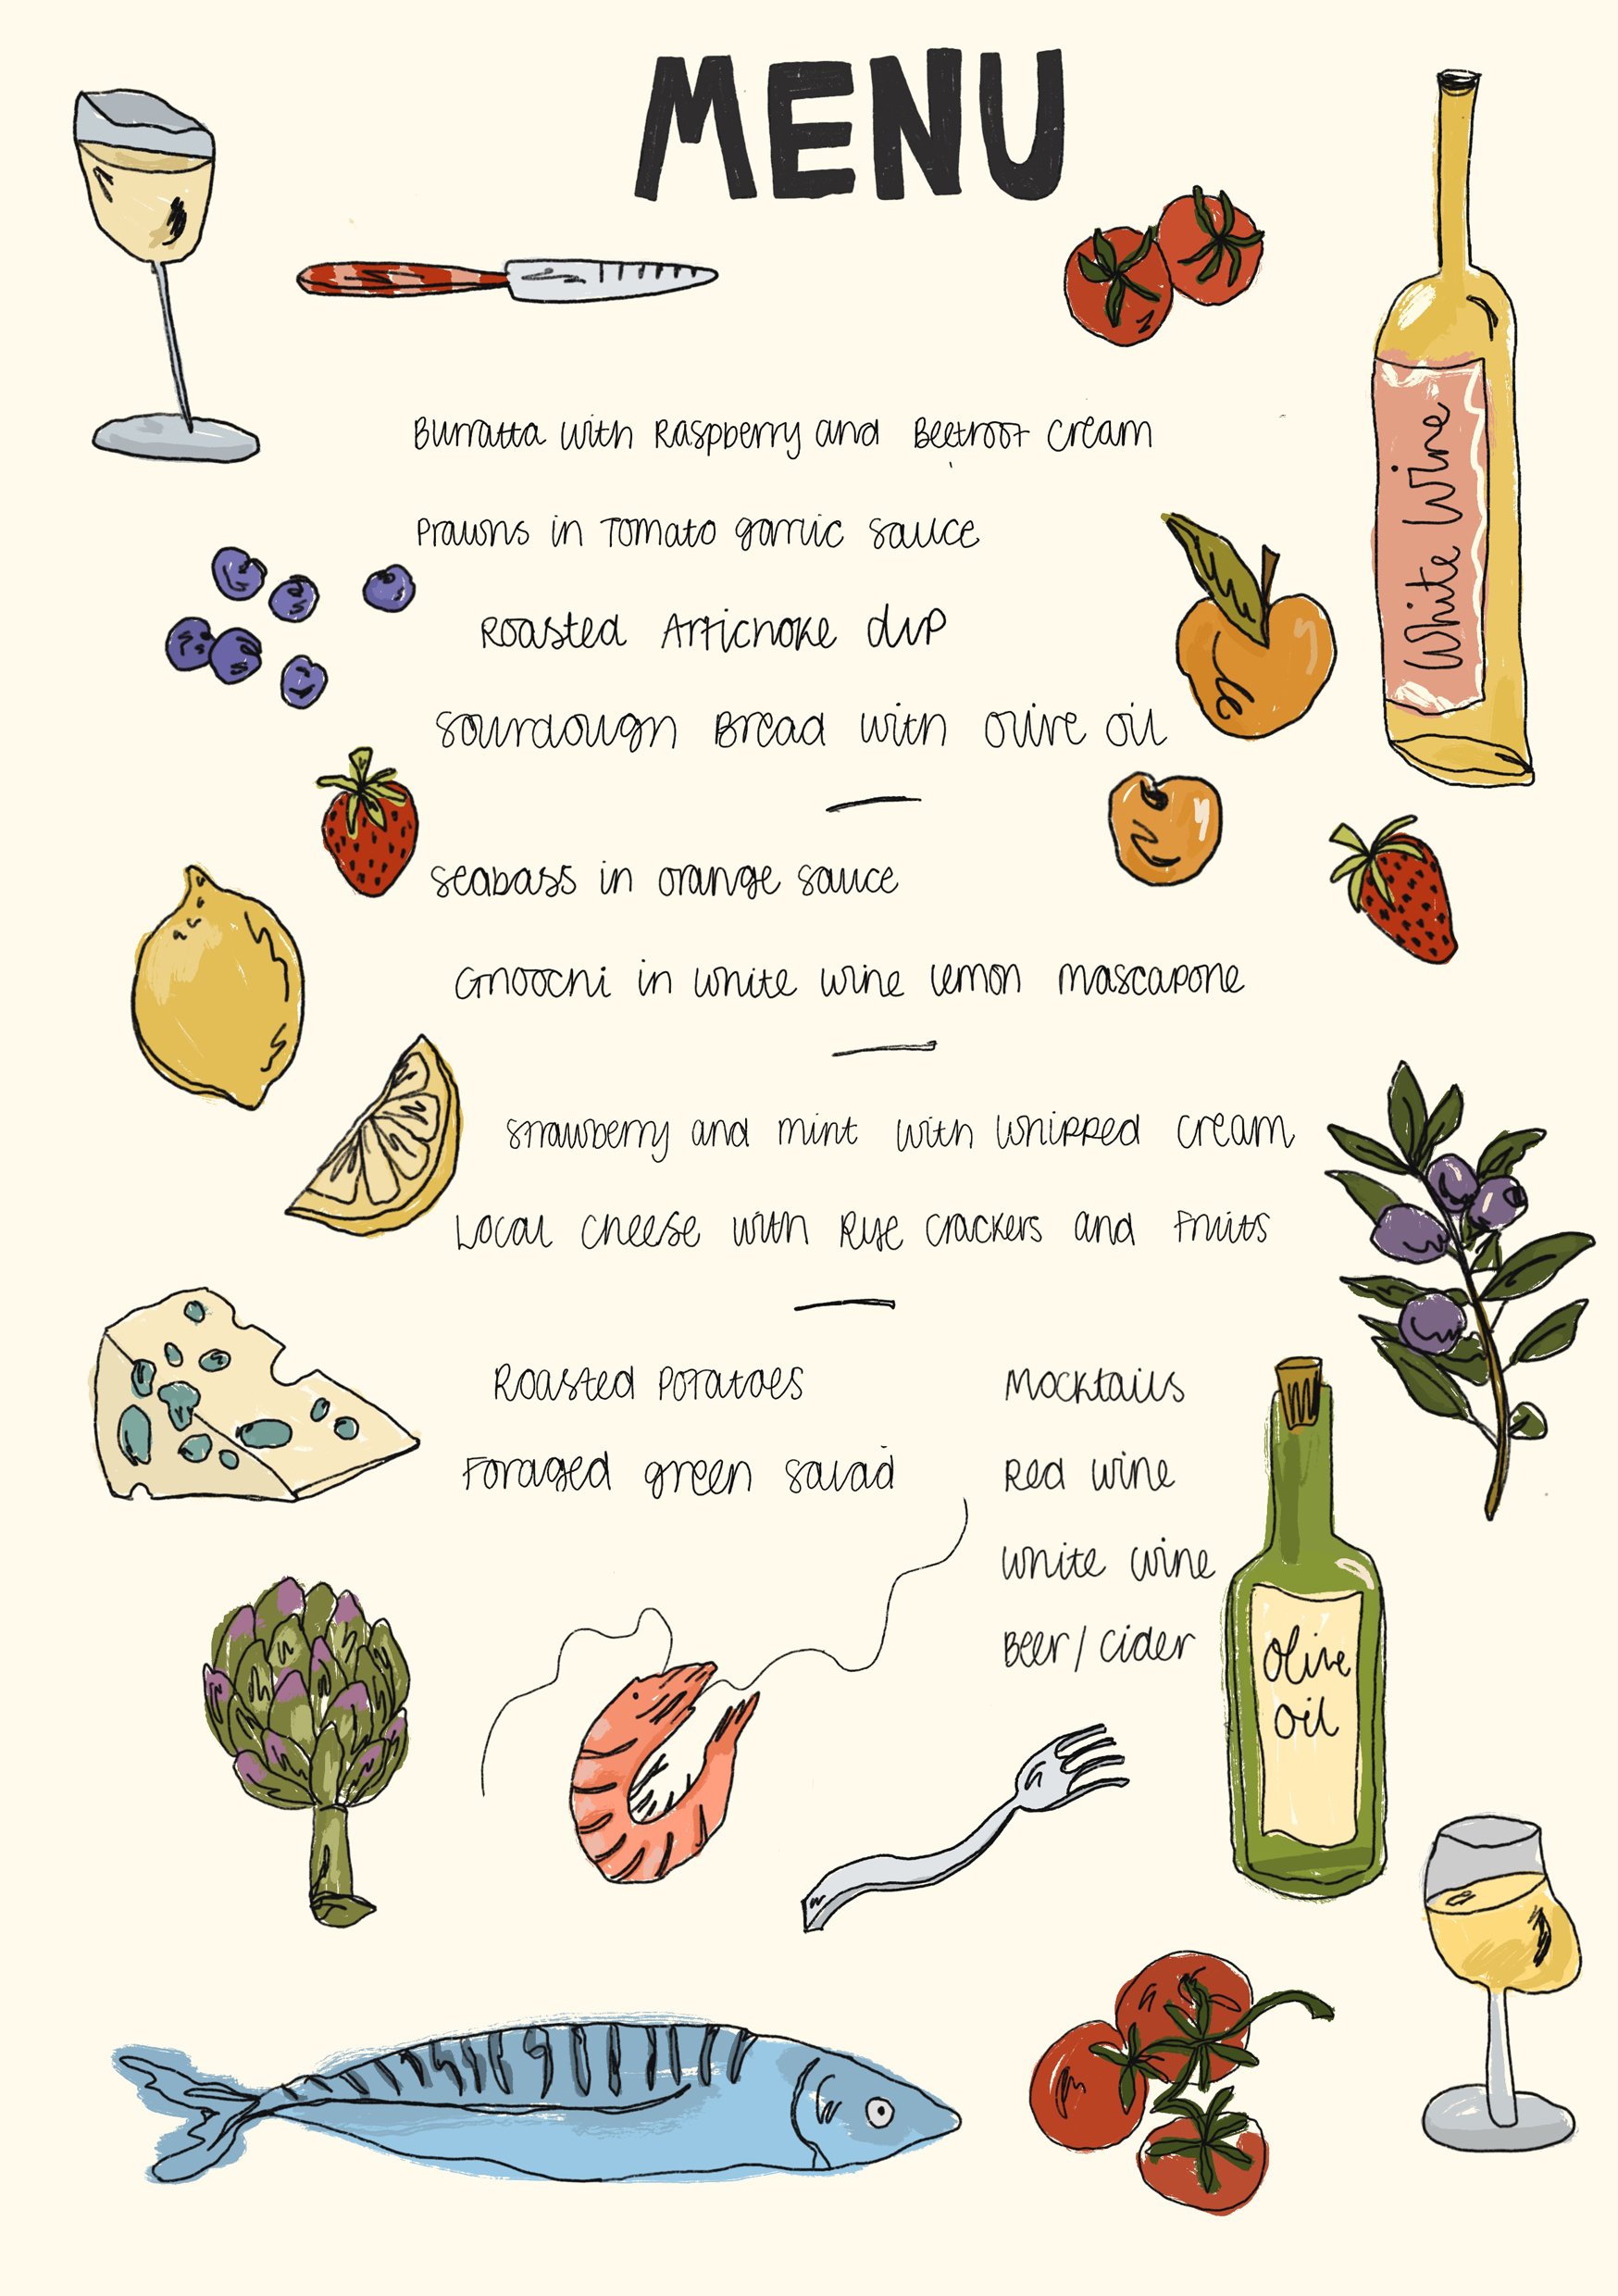 MENU
White Wine
Burratta with Raspberry and Beetroot cream
Prawns in Tomato garlic sauce
Roasted Artichoke dip
Sourdough Bread with olive oil
Seabass in orange sauce
Gnoochi in white wine lemon mascapone
Strawberry and mint with whipped cream
Local cheese with Rye crackers and fruits
Roasted Potatoes
Foraged green salad
Mocktails
Red wine
White wine
Beer/cider
Olive
oil